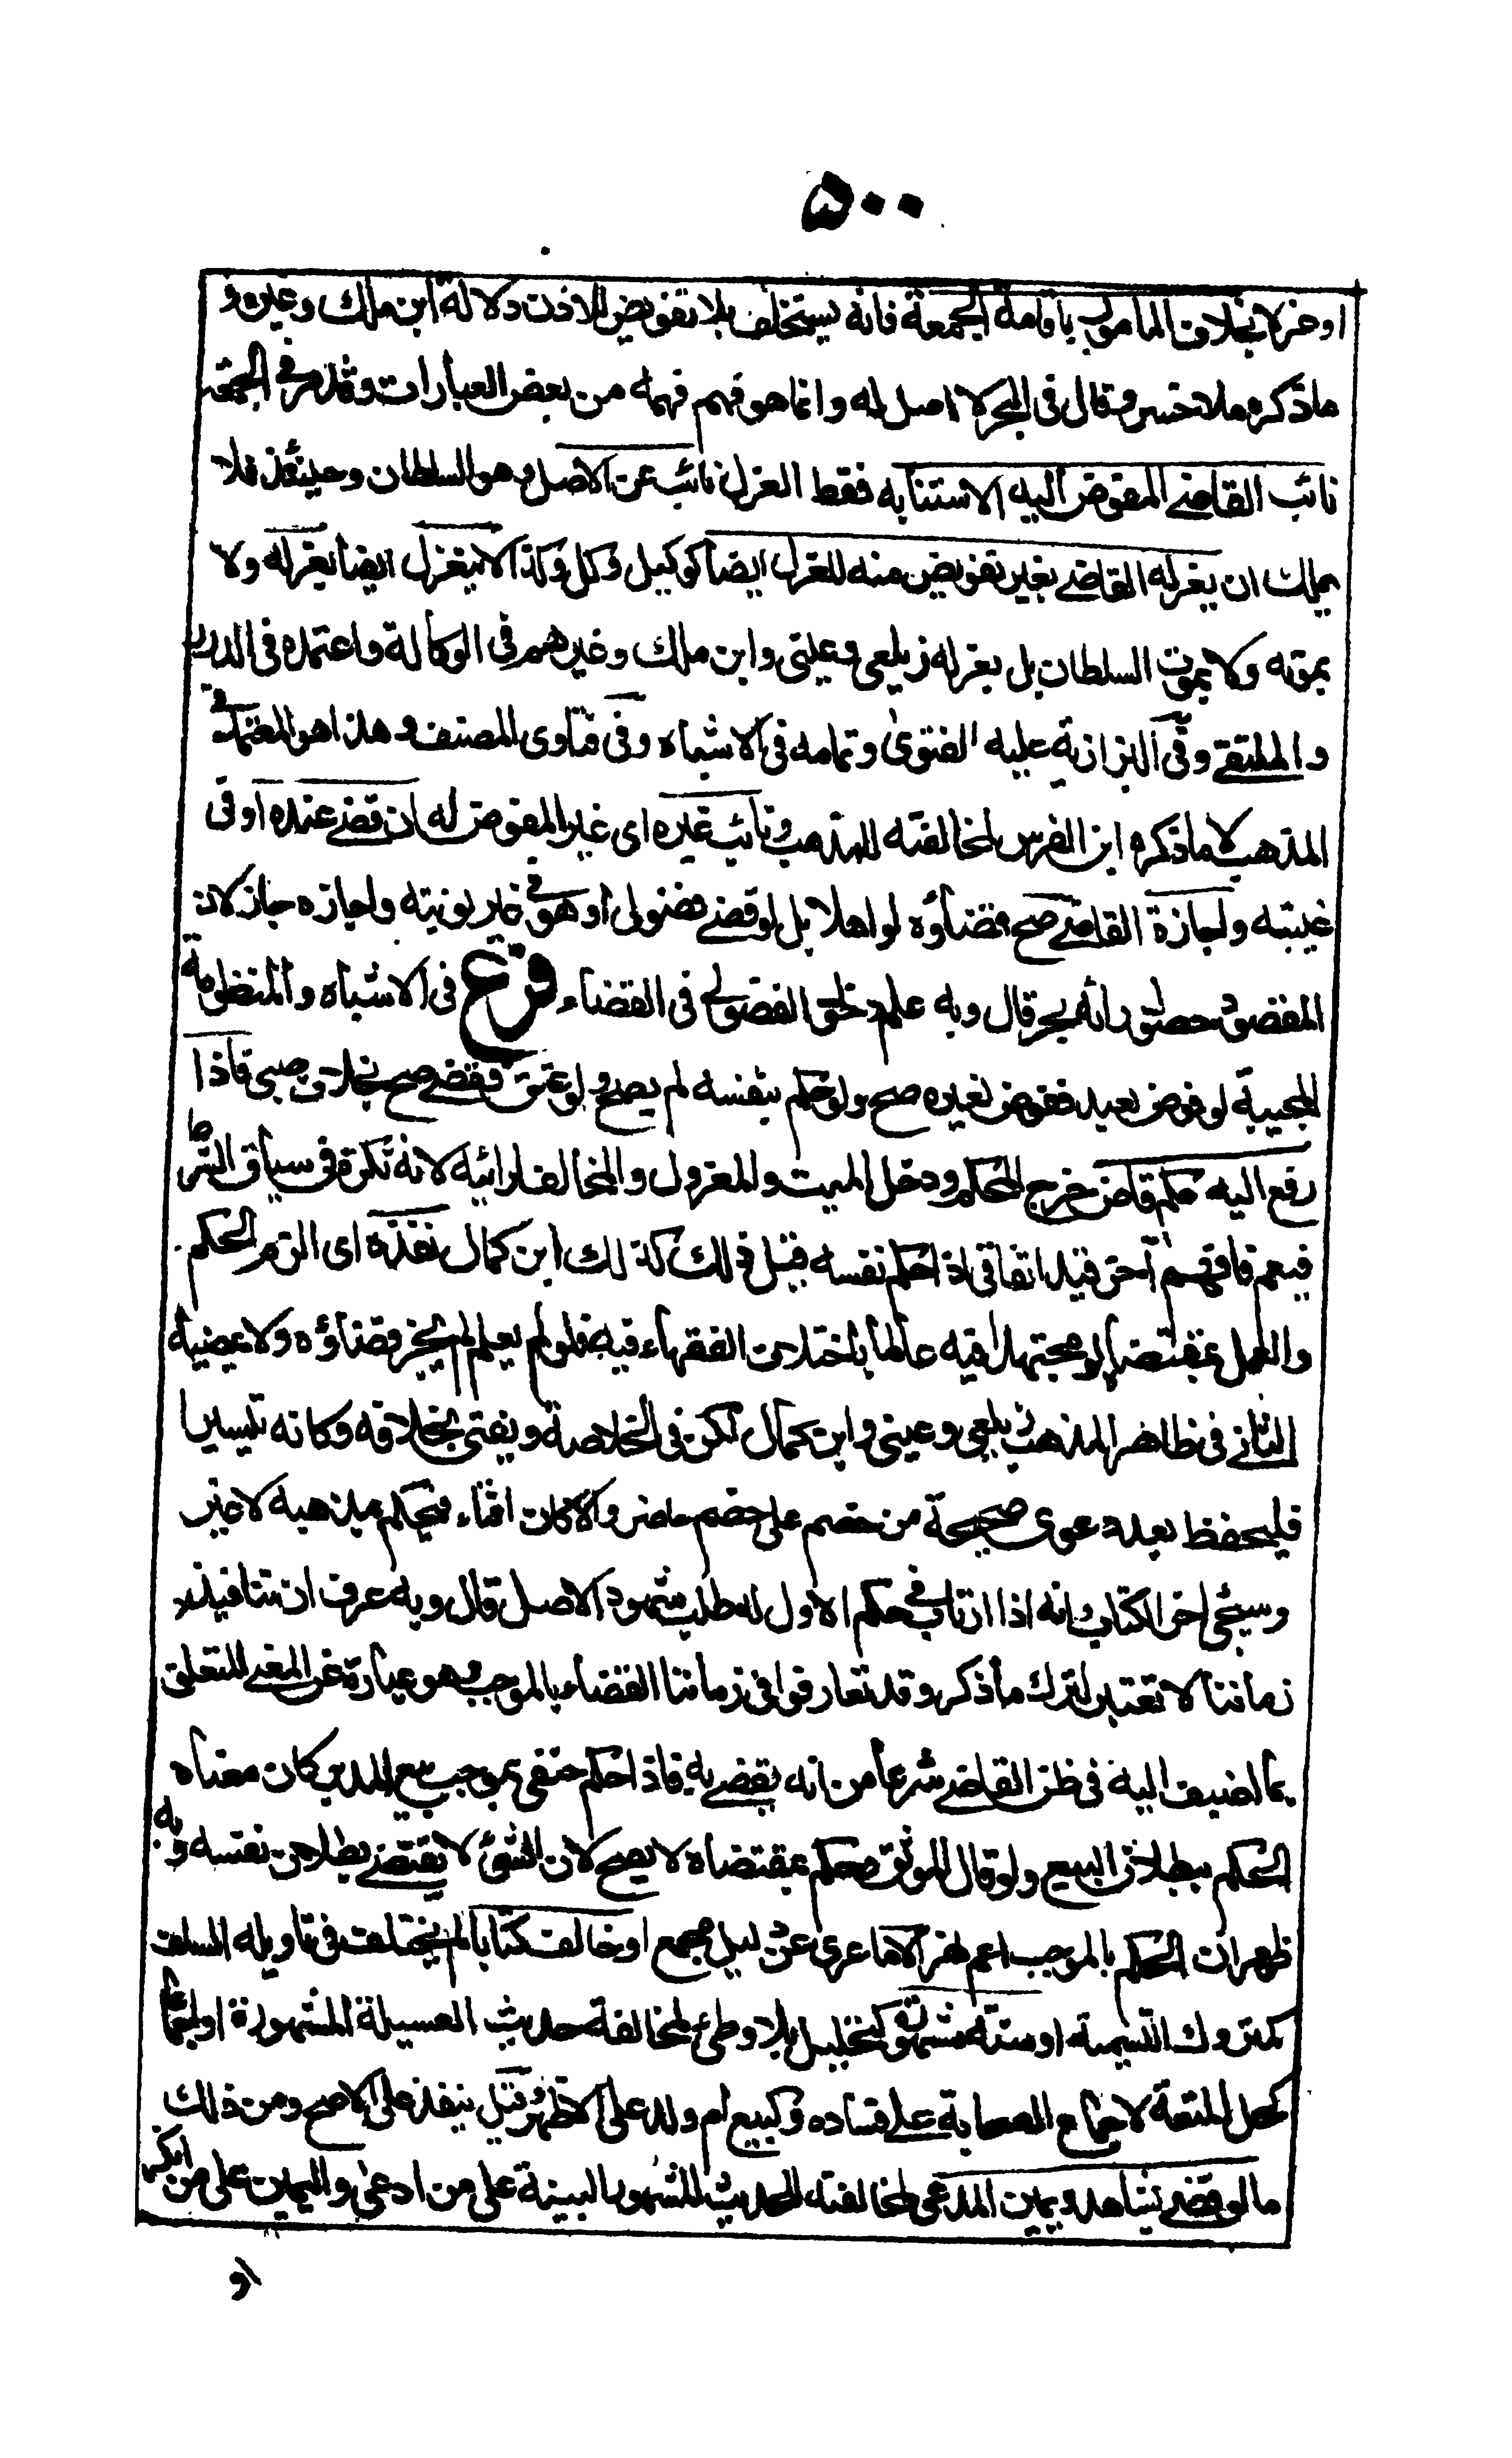 ٥٠٠
او خر لا بخلاف المامور باقامة الجمعة فانه يستخلف بلا تفويض للاذن دلالة ابن ملك وغيره و
ما ذكره ملا خسرو قال فى البحر لا اصل له وانما هو فهم فهمه من بعض العبارات وقد مر فى الجمعة
نائب القاضى المفوض اليه الاستنابه فقط العزل نائب عن الاصل وهو السلطان وحينئذ فلا
يملك ان يعزله القاضى بغير تفويض منه للعزل ايضا كوكيل وكل وكذا لا ينعزل ايضا بعزله ولا
بموته ولا بموت السلطان بل بعزله زيلعى وعينى وابن ملك وغيرهم فى الوكالة واعتمده فى الدرر
والملتقى وفى البزازية عليه الفتوى وتمامه فى الاشباه وفى فتاوى المصنف وهذا هو المعتمد فى
المذهب لا ما ذكره ابن الغرس لمخالفته للمذهب ونائب غيره اى غير المفوض له ان قضى عنده او فى
غيبته واجازة القاضى صح قضاؤه لو اهلا بل لو قضى فضولى او هو فى غير نوبته واجازه جاز لان
المقصود حصول رأيه بحر قال وبه علم دخول الفضولى فى القضاء فرع فى الاشباه والمنظومة
المحبية لو فوض لعبد ففوض لغيره صح ولو حكم بنفسه لم يصح ولو عتق فقضى صح بخلاف صبى فاذا
رفع اليه حكم قاض خرج المحكم ودخل الميت والمعزول والمخالف لرائيه لانه نكرة فى سياق الشرط
فيعم فافهم آخر قيد اتفاقى اذ احكم نفسه قبل ذلك كذلك ابن كمال نفذه اى الزم الحكم
والعمل بمقتضاه لو مجتهدا فيه عالما باختلاف الفقهاء فيه فلو لم يعلم لم يجز قضاؤه ولا يمضيه
الثانى فى ظاهر المذهب زيلعى وعينى وابن كمال لكن فى الخلاصة ويفتى بخلافه وكانه تيسيرا
فليحفظ بعد دعوى صحيحة من خصم على خصم حاضر والا كان افتاء فيحكم بمذهبه لا غير
وسيجئ اخر الكتاب وانه اذا ارتاب فى حكم الاول له طلب شهود الاصل قال وبه عرف ان تنافيذ
زماننا لا تعتبر لترك ما ذكر وقد تعارفوا فى زماننا القضاء بالموجب وهو عبارة عن المعنى المتعلق
بما اضيف اليه فى ظن القاضى شرعا من انه يقضى به فاذا حكم حنفى بموجب بيع المدبر كان معناه
الحكم ببطلان البيع ولو قال الموثق وحكم بمقتضاه لا يصح لان الشئ لا يقتضى بطلان نفسه وبه
ظهر ان الحكم بالموجب اعم نهر الا ما عرى عن دليل مجمع او خالف كتابا لم يختلف فى تاويله السلف
كمتروك التسمية او سنة مشهورة كتحليل بلا وطئ لمخالفة حديث العسيلة المشهورة او اجماعا
كحل المتعة لاجماع الصحابة على فساده وكبيع ام ولد على الاظهر وقيل ينفذ على الاصح ومن ذلك
ما لو قضى بشاهد ويمين المدعى لمخالفته للحديث المشهور البينة على من ادعى واليمين على من انكر
او